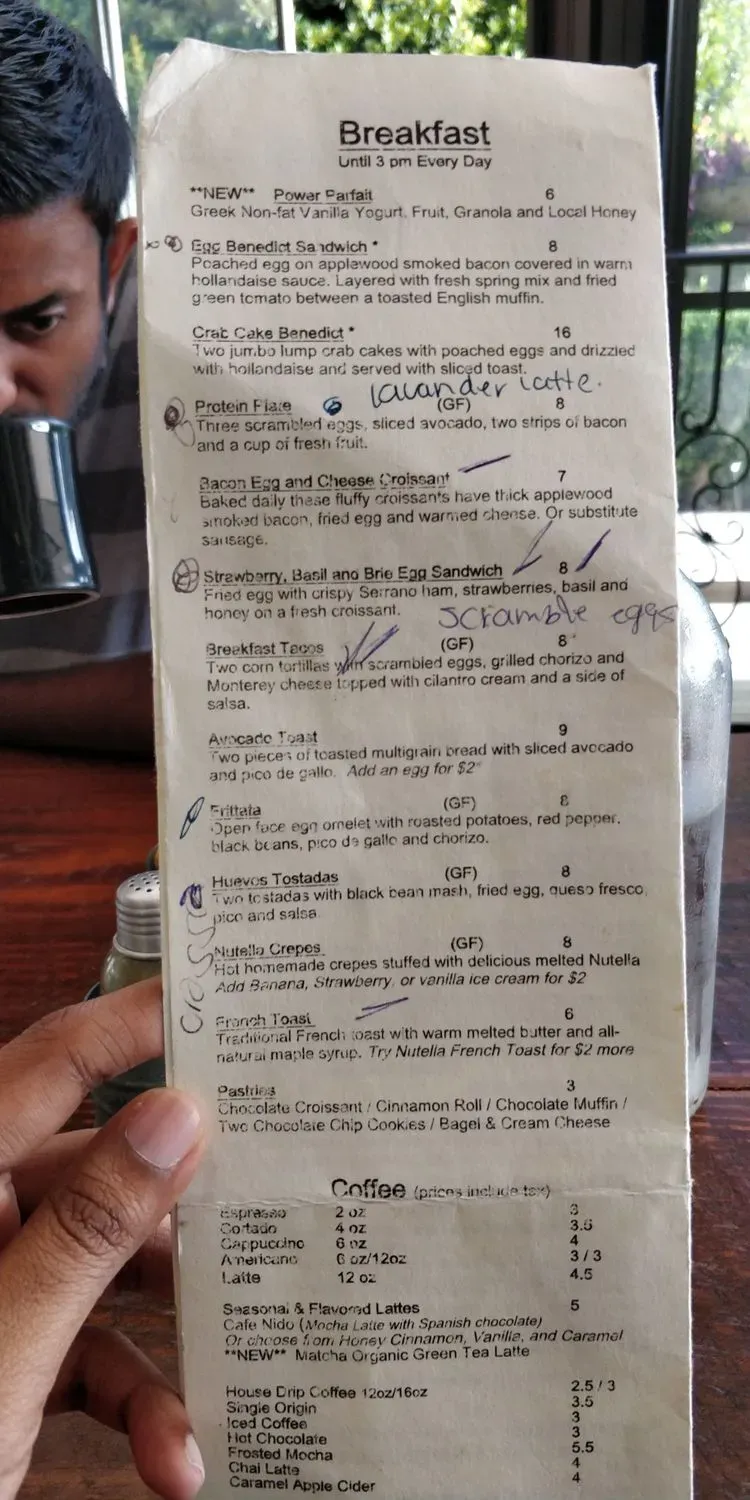 Breakfast
Until 3 pm Every Day
**NEW** Power Parfait 6
Greek Non-fat Vanilla Yogurt, Fruit, Granola and Local Honey
Egg Benedict Sandwich * 8
Poached egg on applewood smoked bacon covered in warm
hollandaise sauce. Layered with fresh spring mix and fried
green tomato between a toasted English muffin.
Crab Cake Benedict * 16
Two jumbo lump crab cakes with poached eggs and drizzled
with hollandaise and served with sliced toast.
lavander latte.
Protein Plate (GF) 8
Three scrambled eggs, sliced avocado, two strips of bacon
and a cup of fresh fruit.
Bacon Egg and Cheese Croissant 7
Baked daily these fluffy croissants have thick applewood
smoked bacon, fried egg and warmed cheese. Or substitute
sausage.
Strawberry, Basil and Brie Egg Sandwich 8
Fried egg with crispy Serrano ham, strawberries, basil and
honey on a fresh croissant.
scramble eggs
Breakfast Tacos (GF) 8
Two corn tortillas with scrambled eggs, grilled chorizo and
Monterey cheese topped with cilantro cream and a side of
salsa.
Avocado Toast 9
Two pieces of toasted multigrain bread with sliced avocado
and pico de gallo. Add an egg for $2
Frittata (GF) 8
Open face egg omelet with roasted potatoes, red pepper,
black beans, pico de gallo and chorizo.
Huevos Tostadas (GF) 8
Two tostadas with black bean mash, fried egg, queso fresco,
pico and salsa
Nutella Crepes (GF) 8
Hot homemade crepes stuffed with delicious melted Nutella
Add Banana, Strawberry, or vanilla ice cream for $2
French Toast 6
Traditional French toast with warm melted butter and all-
natural maple syrup. Try Nutella French Toast for $2 more
Pastries 3
Chocolate Croissant / Cinnamon Roll / Chocolate Muffin /
Two Chocolate Chip Cookies / Bagel & Cream Cheese
Coffee (prices include tax)
Espresso 2 oz 3
Cortado 4 oz 3.5
Cappuccino 6 oz 4
Americano 6 oz/12oz 3 / 3
Latte 12 oz 4.5
Seasonal & Flavored Lattes 5
Cafe Nido (Mocha Latte with Spanish chocolate)
Or choose from Honey Cinnamon, Vanilla, and Caramel
**NEW** Matcha Organic Green Tea Latte
House Drip Coffee 12oz/16oz 2.5 / 3
Single Origin 3.5
Iced Coffee 3
Hot Chocolate 3
Frosted Mocha 5.5
Chai Latte 4
Caramel Apple Cider 4